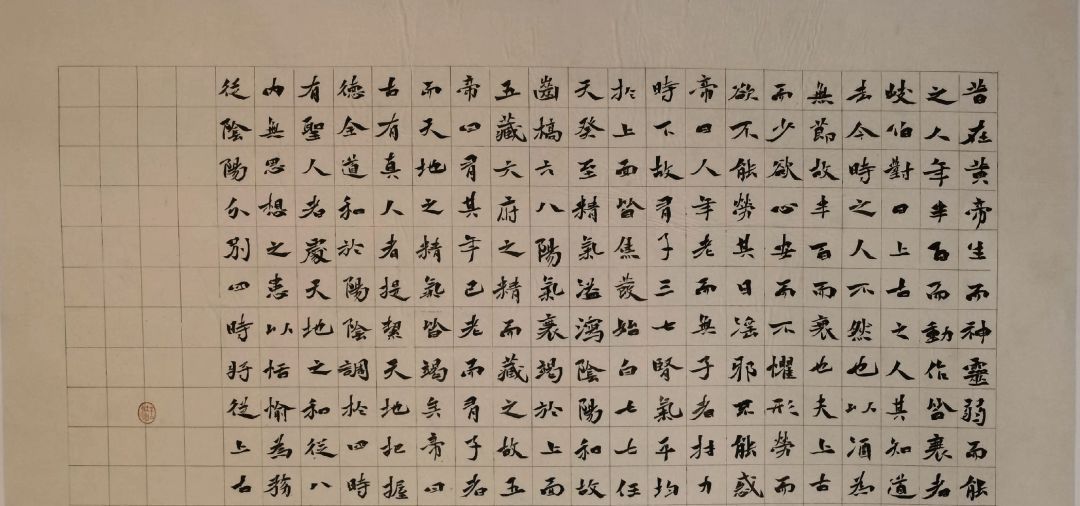 昔在黃帝生而神靈弱而能
之人年半百而動作皆衰者
岐伯對曰上古之人其知道
去今時之人不然也以酒為
無節故半百而衰也夫上古
而少欲心安而不懼形勞而
欲不能勞其目淫邪不能惑
帝曰人年老而無子者材力
時下故有子三七腎氣平均
於上面皆焦發始白七七任
天癸至精氣溢瀉陰陽和故
齒槁六八陽氣衰竭於上面
五藏六府之精而藏之故五
帝曰有其年已老而有子者
而天地之精氣皆竭矣帝曰
古有真人者提挈天地把握
德全道和於陽陰調於四時
有聖人者處天地之和從八
内無思想之患以恬愉為務
從陰陽分別四時將從上古